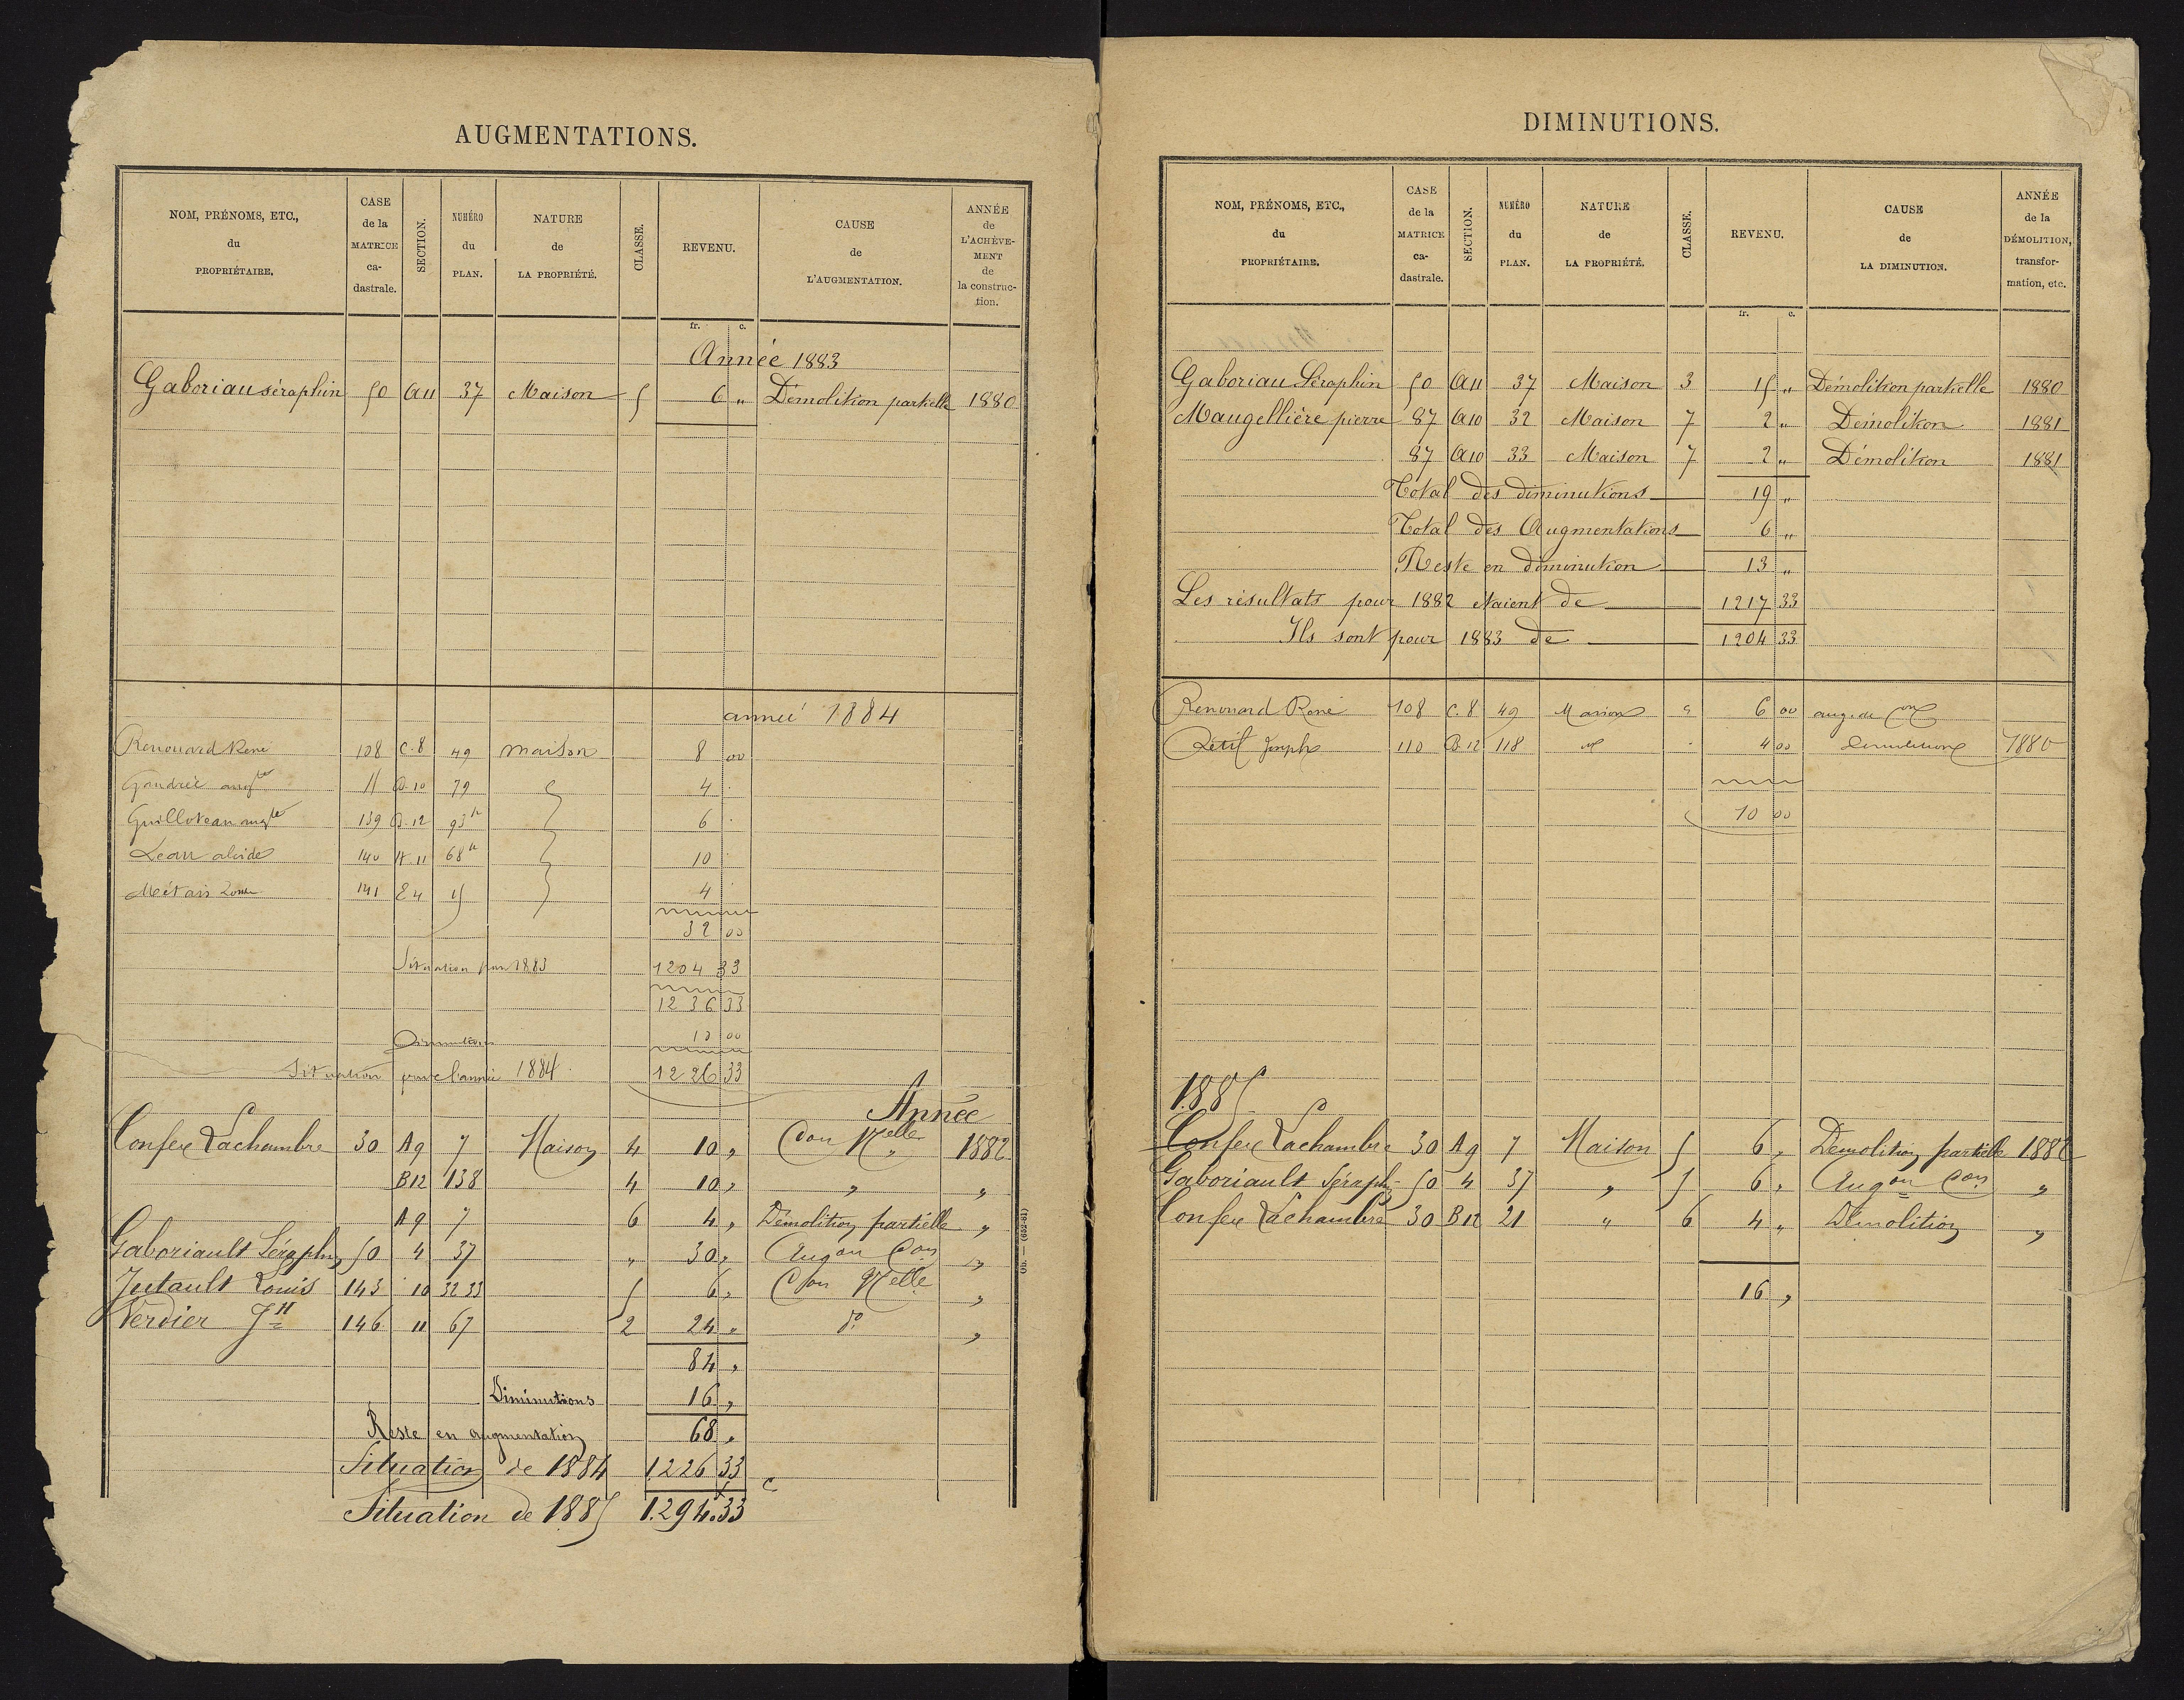 AUGMENTATIONS.
NOM, PRÉNOMS, ETC., du PROPRIÉTAIRE.
CASE de la MATRICE ca-dastrale.
SECTION.
NUMÉRO du PLAN.
NATURE de LA PROPRIÉTÉ.
CLASSE.
REVENU.
CAUSE de L'AUGMENTATION.
ANNÉE de L'ACHÈVE-MENT de la construc-tion.
fr. c.
Année 1883
Gaboriau séraphin 50 A11 37 Maison 5 6 „ Démolition partielle 1880
année 1884
Renouard René 108 C.8 49 maison 8 00
79 4
Guilloteau augte 139 B.12 93 6
140 11 68 10
Métais 141 E 4 15 4
32 00
Situation pour 1883 1204 33
1236 33
Diminution 10 00
Situation pour l'année 1884 1226 33
Année
Confex Lachambre 30 A9 7 Maison 4 10 „ Con Nelle 1882
B12 138 4 10 „ „ „
A9 7 6 4 „ Démolition partielle „
Gaboriault Séraphin 50 4 37 „ 30 „ Augon Con „
Jutault Louis 143 10 32 33 5 6 „ Con Nelle „
Verdier JH 146 11 67 2 24 „ do „
84 „
Diminutions 16 „
Reste en augmentation 68 „
Situation de 1884 1226 33
Situation de 1885 1.294.33
DIMINUTIONS.
NOM, PRÉNOMS, ETC., du PROPRIÉTAIRE.
CASE de la MATRICE ca-dastrale.
SECTION.
NUMÉRO du PLAN.
NATURE de LA PROPRIÉTÉ.
CLASSE.
REVENU.
CAUSE de LA DIMINUTION.
ANNÉE de la DÉMOLITION, transfor-mation, etc.
fr. c.
Gaboriau Séraphin 50 A11 37 Maison 3 15 „ Démolition partielle 1880
Maugellière pierre 87 A10 32 Maison 7 2 „ Démolition 1881
87 A10 33 Maison 7 2 „ Démolition 1881
Total des diminutions 19 „
Total des Augmentations 6 „
Reste en diminution 13 „
Les résultats pour 1882 étaient de 1217 33
Ils sont pour 1883 de 1204 33
Renouard René 108 C.8 49 Maison 6 00 aug. de con
Pétil Joseph 110 B.12 118 4 00 Démolition 1880
10 00
1885
Confex Lachambre 30 A9 7 Maison 5 6 „ Démolition partielle 1882
Gaboriault Séraphin 50 4 37 „ 5 6 „ Augon Con „
Confex Lachambre 30 B12 21 „ 6 4 „ Démolition „
16 „